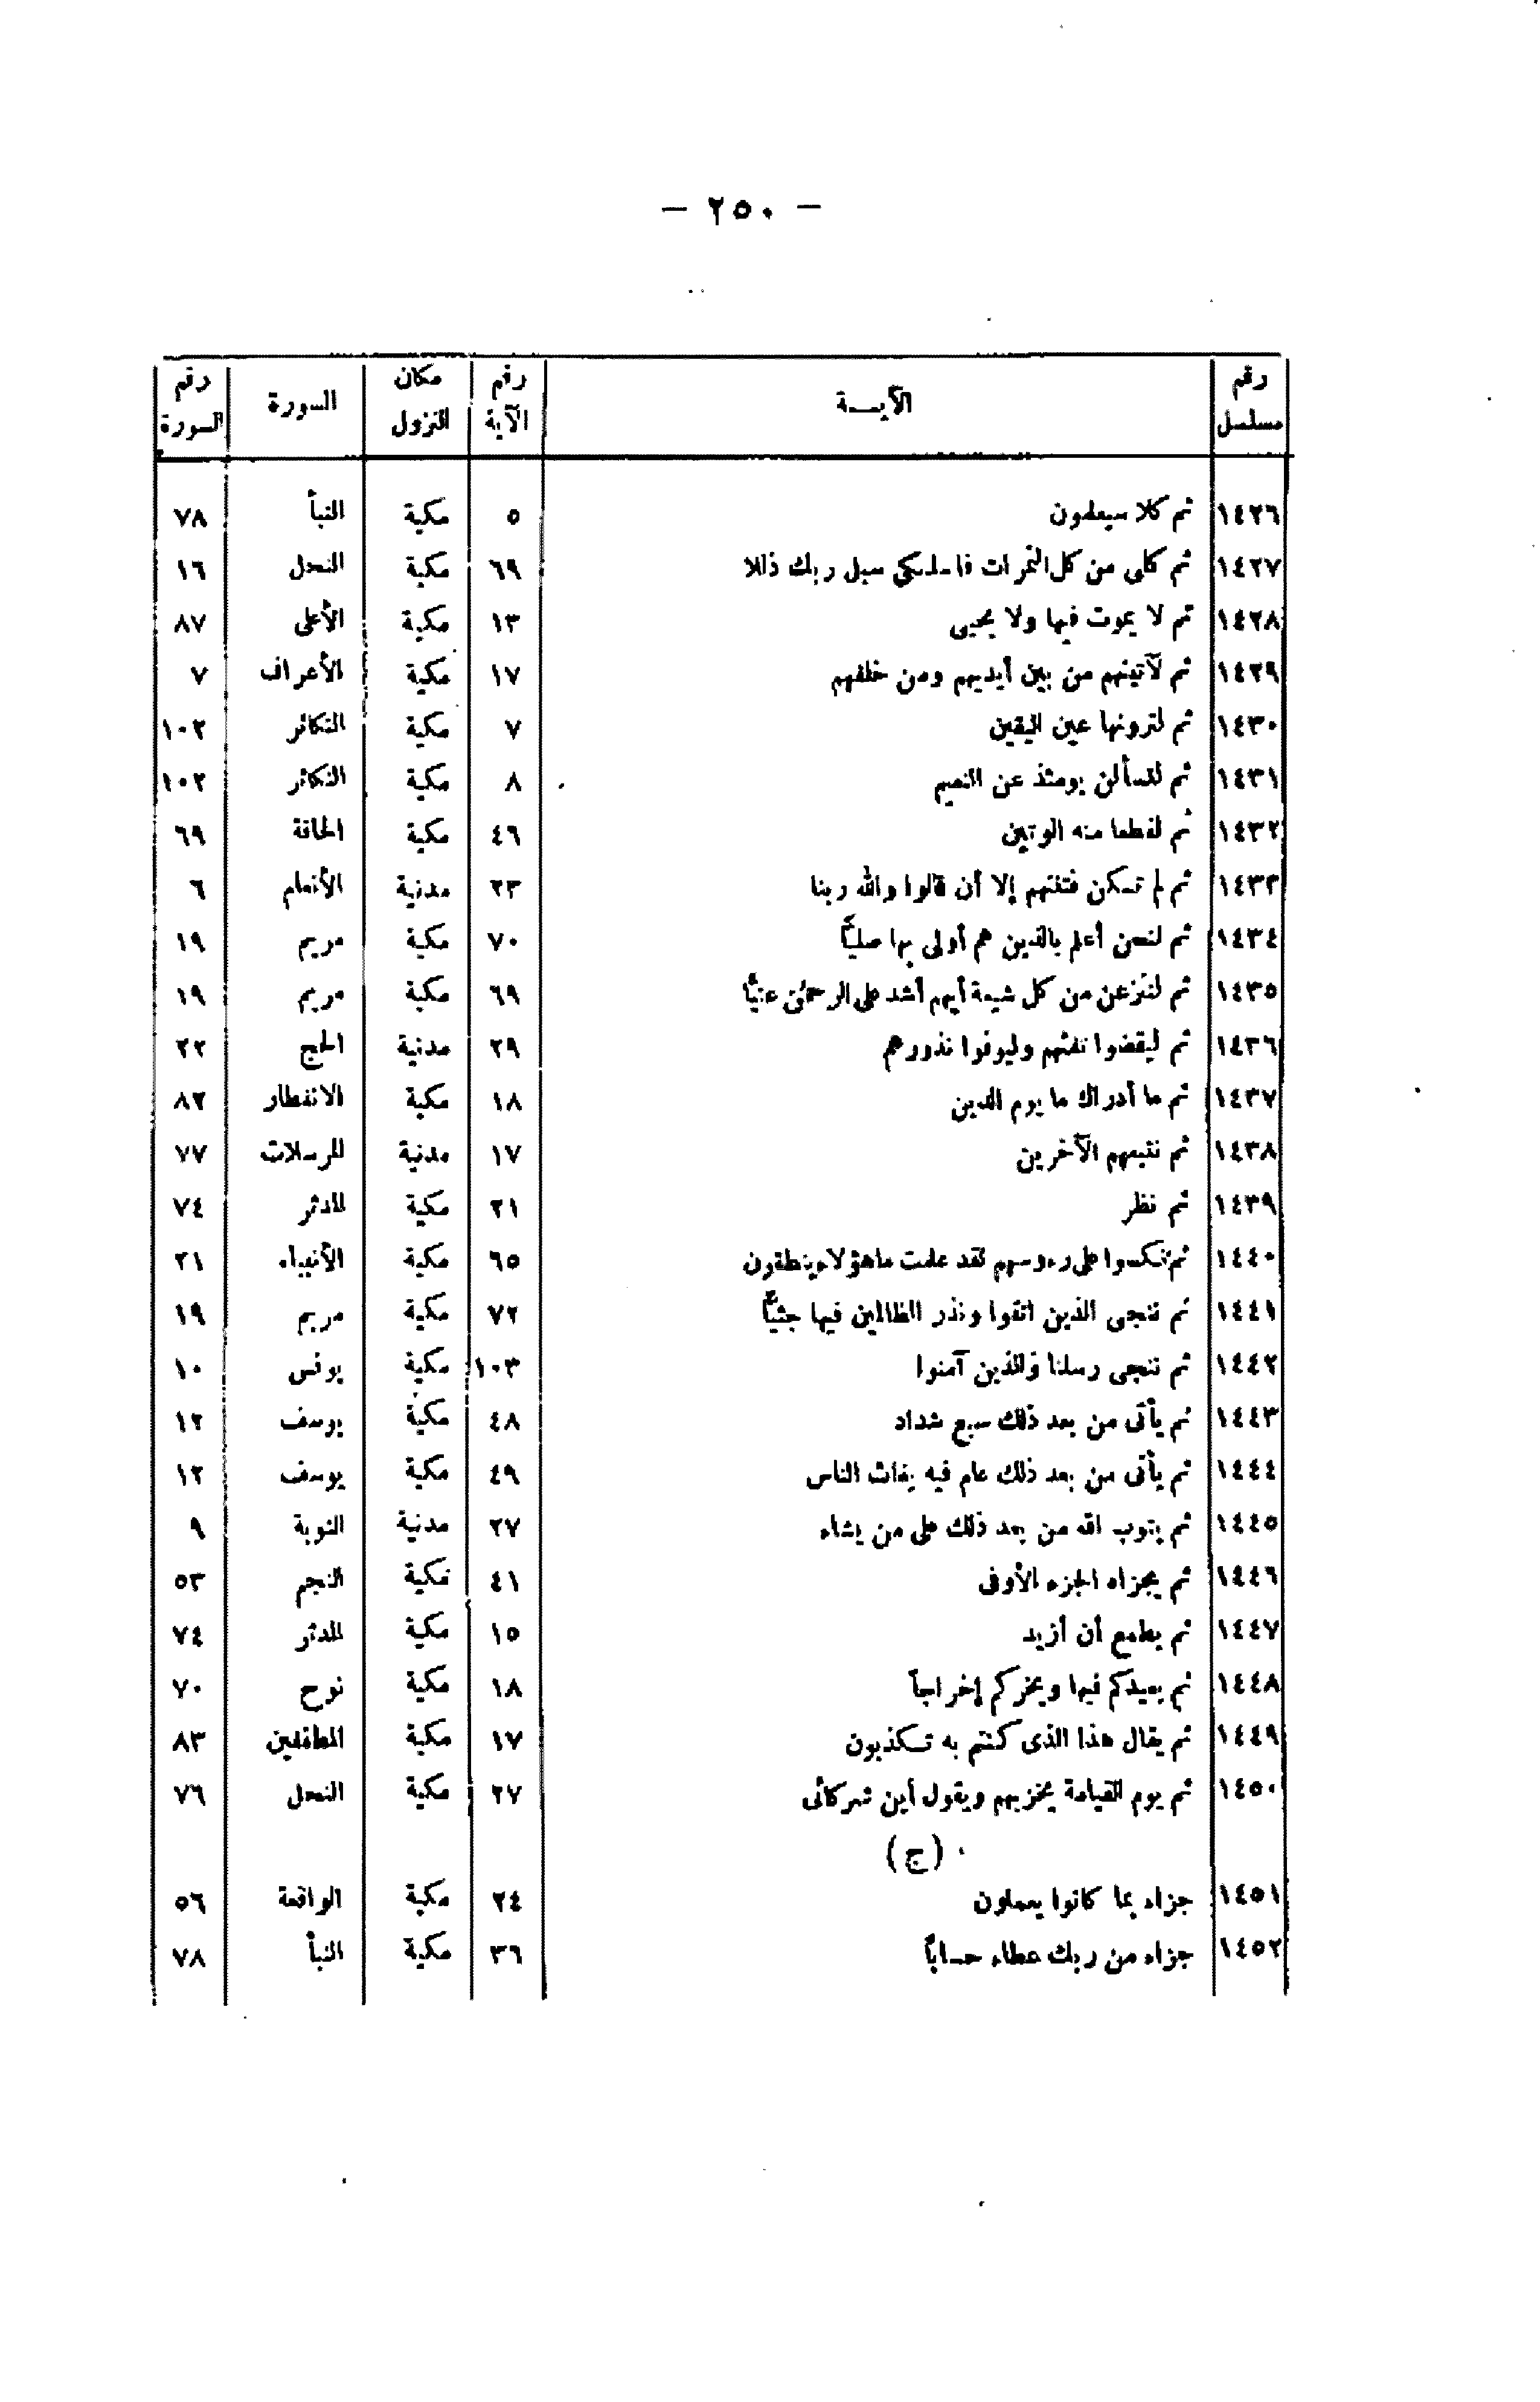 — ٢٥٠ —
رقم مسلسل | الآيـــة | رقم الآية | مكان النزول | السورة | رقم السورة
١٤٢٦ | ثم كلا سيعلمون | ٥ | مكية | النبأ | ٧٨
١٤٢٧ | ثم كلى من كل الثمرات فاسلـكي سبل ربك ذللا | ٦٩ | مكية | النحل | ١٦
١٤٢٨ | ثم لا يموت فيها ولا يحيى | ١٣ | مكية | الأعلى | ٨٧
١٤٢٩ | ثم لآتينهم من بين أيديهم ومن خلفهم | ١٧ | مكية | الأعراف | ٧
١٤٣٠ | ثم لترونها عين اليقين | ٧ | مكية | التكاثر | ١٠٢
١٤٣١ | ثم لتسألن يومئذ عن النعيم | ٨ | مكية | التكاثر | ١٠٢
١٤٣٢ | ثم لقطعا منه الوتين | ٤٦ | مكية | الحاقة | ٦٩
١٤٣٣ | ثم لم تـكن فتنتهم إلا أن قالوا والله ربنا | ٢٣ | مدنية | الأنعام | ٦
١٤٣٤ | ثم لنحن أعلم بالذين هم أولى بها صليًّا | ٧٠ | مكية | مريم | ١٩
١٤٣٥ | ثم لننزعن من كل شيعة أيهم أشد على الرحمٰن عتيًّا | ٦٩ | مكية | مريم | ١٩
١٤٣٦ | ثم ليقضوا تفثهم وليوفوا نذورهم | ٢٩ | مدنية | الحج | ٢٢
١٤٣٧ | ثم ما أدراك ما يوم الدين | ١٨ | مكية | الانفطار | ٨٢
١٤٣٨ | ثم نتبعهم الآخرين | ١٧ | مدنية | المرسلات | ٧٧
١٤٣٩ | ثم نظر | ٢١ | مكية | المدثر | ٧٤
١٤٤٠ | ثم نـكسوا على رءوسهم لقد علمت ماهؤلاء ينطقون | ٦٥ | مكية | الأنبياء | ٢١
١٤٤١ | ثم ننجى الذين اتقوا ونذر الظالمين فيها جثيًّا | ٧٢ | مكية | مريم | ١٩
١٤٤٢ | ثم ننجى رسلنا والذين آمنوا | ١٠٣ | مكية | يونس | ١٠
١٤٤٣ | ثم يأتى من بعد ذلك سبع شداد | ٤٨ | مكية | يوسف | ١٢
١٤٤٤ | ثم يأتى من بعد ذلك عام فيه يغاث الناس | ٤٩ | مكية | يوسف | ١٢
١٤٤٥ | ثم يتوب الله من بعد ذلك على من يشاء | ٢٧ | مدنية | التوبة | ٩
١٤٤٦ | ثم يجزاه الجزء الأوفى | ٤١ | مكية | النجم | ٥٣
١٤٤٧ | ثم يطمع أن أزيد | ١٥ | مكية | المدثر | ٧٤
١٤٤٨ | ثم يعيدكم فيها ويخركم إخراجاً | ١٨ | مكية | نوح | ٧٠
١٤٤٩ | ثم يقال هذا الذى كنتم به تـكذبون | ١٧ | مكية | المطففين | ٨٣
١٤٥٠ | ثم يوم القيامة يخزيهم ويقول أين شركائى | ٢٧ | مكية | النحل | ٧٦
(ج)
١٤٥١ | جزاء بما كانوا يعملون | ٢٤ | مكية | الواقعة | ٥٦
١٤٥٢ | جزاء من ربك عطاء حساباً | ٣٦ | مكية | النبأ | ٧٨